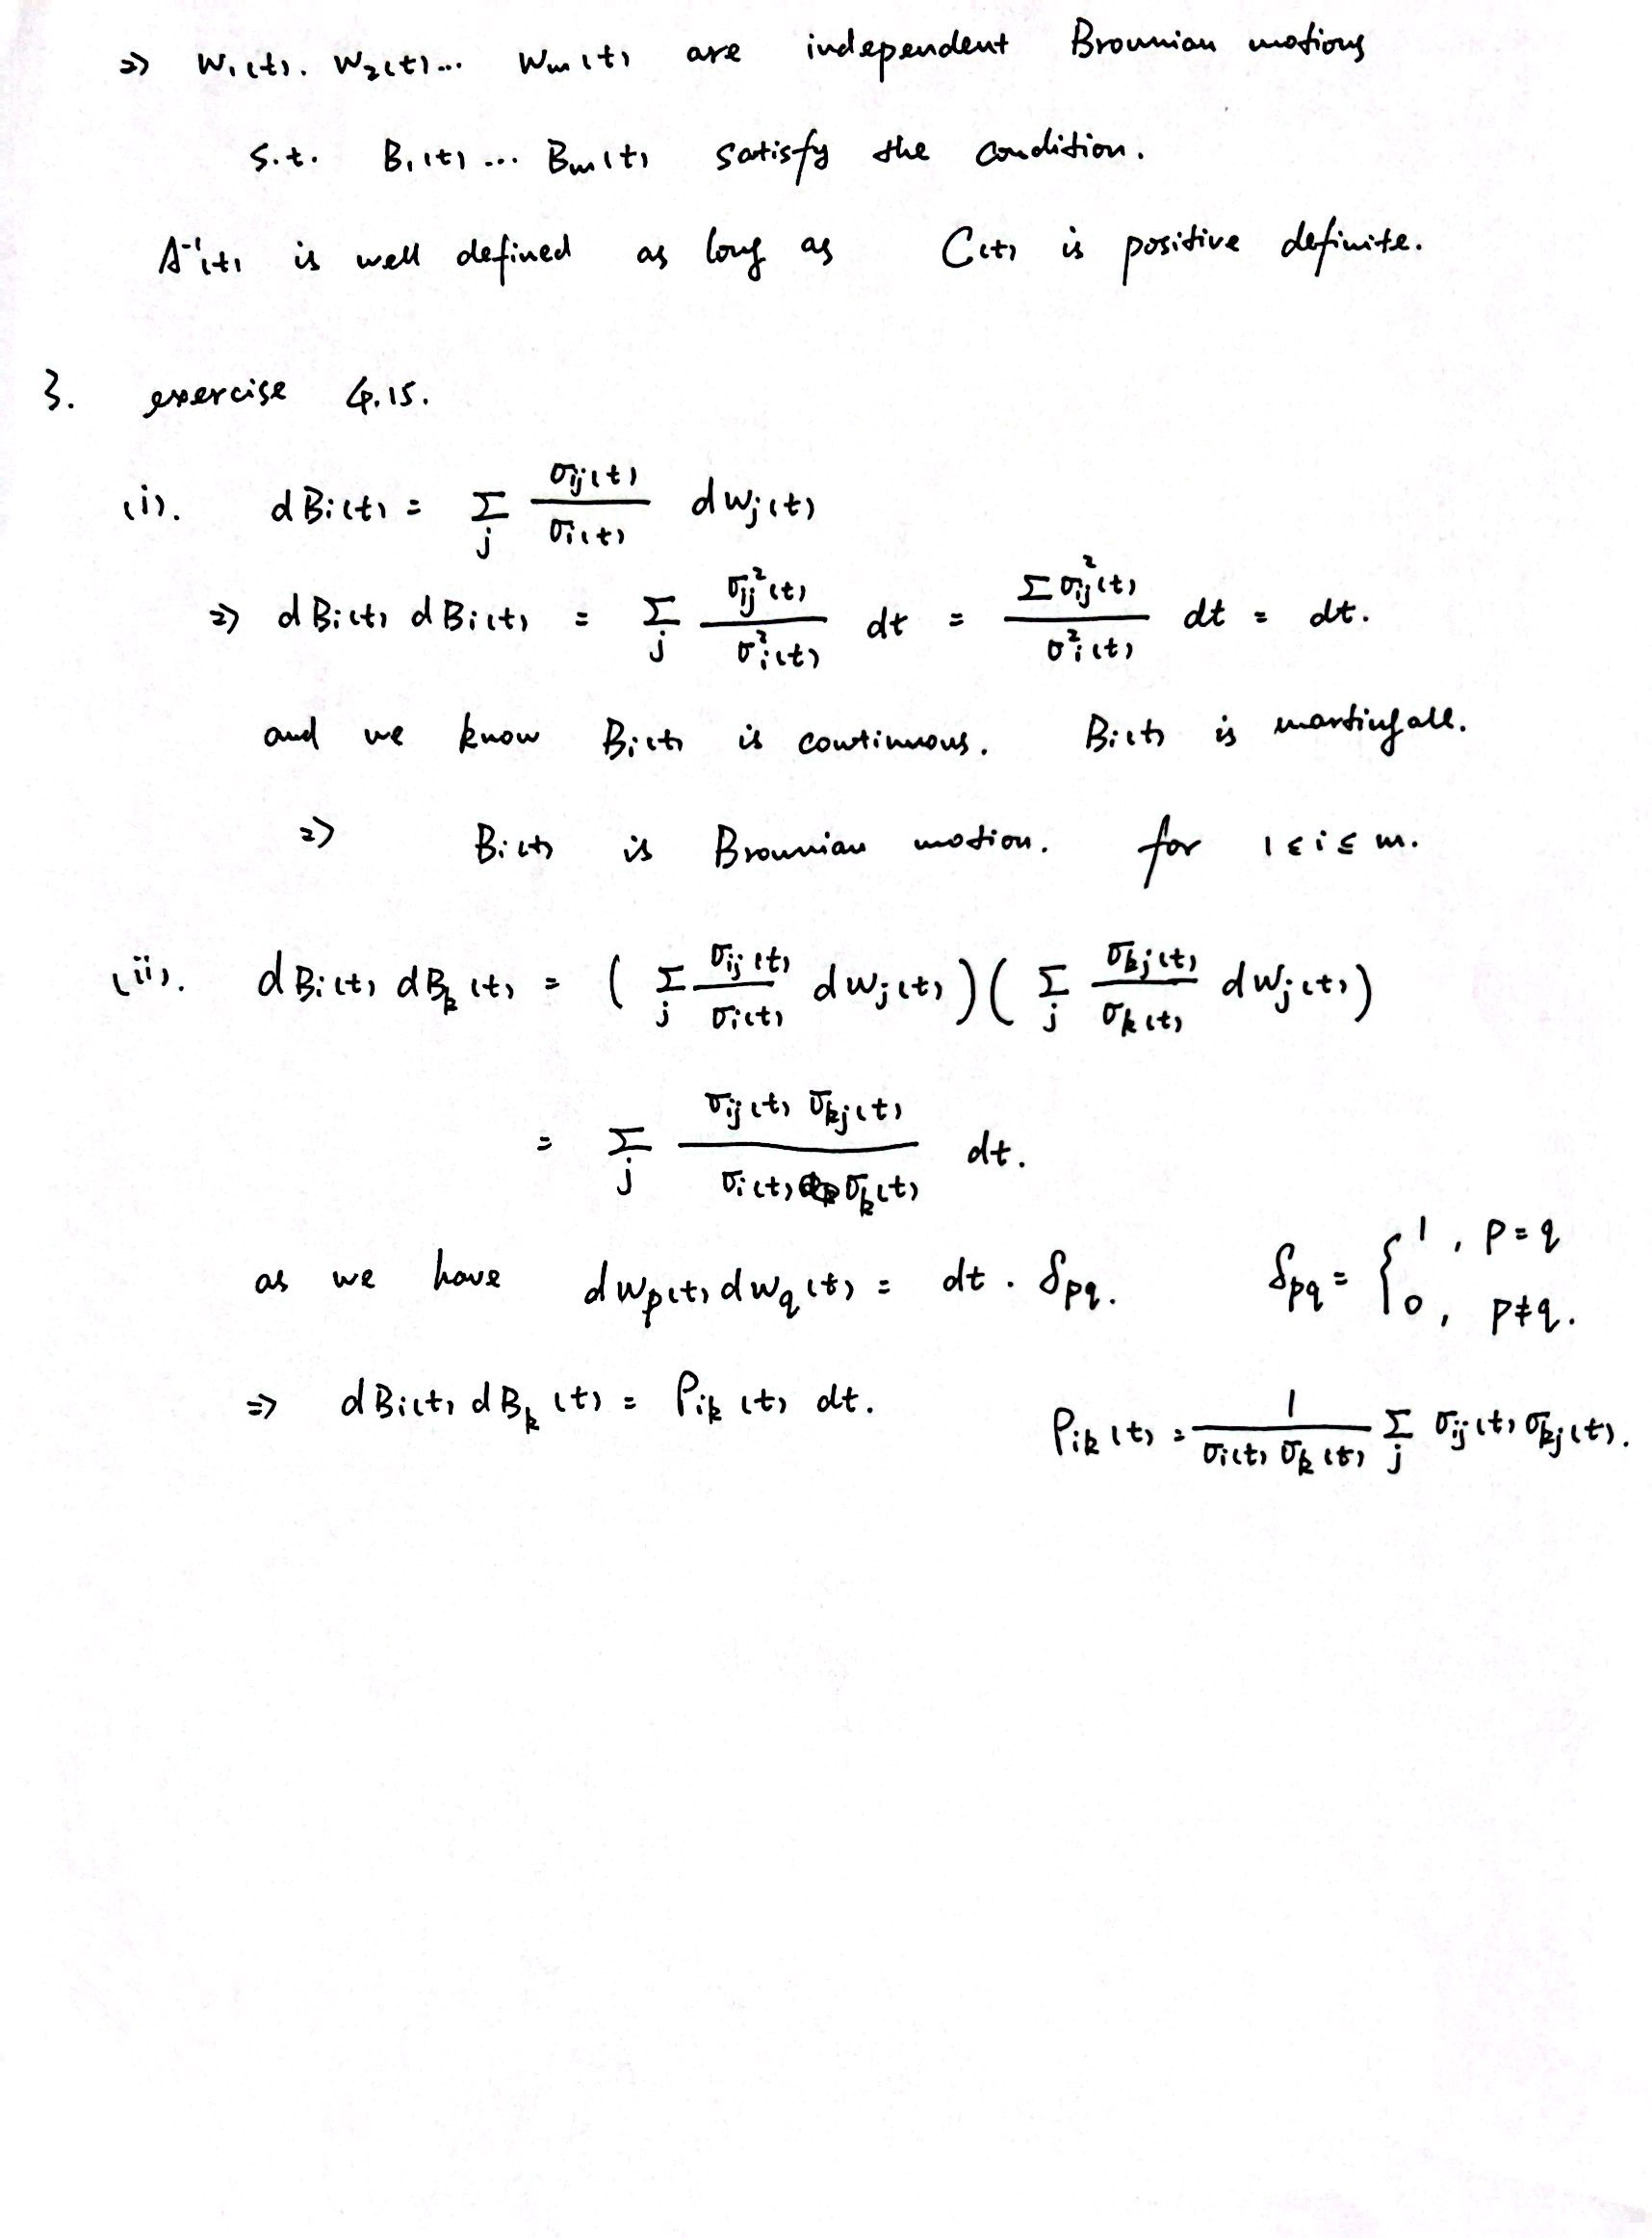 ⇒ W₁(t). W₂(t)... Wm(t) are independent Brownian motions
s.t. B₁(t) ... Bm(t) satisfy the condition.
A⁻¹(t) is well defined as long as C(t) is positive definite.
3. exercise 4.15.
(i). dBi(t) = Σ_j σij(t)/σi(t) dWj(t)
⇒ dBi(t) dBi(t) = Σ_j σij²(t)/σi²(t) dt = Σσij²(t)/σi²(t) dt = dt.
and we know Bi(t) is continuous. Bi(t) is martingale.
⇒ Bi(t) is Brownian motion. for 1 ≤ i ≤ m.
(ii). dBi(t) dBk(t) = ( Σ_j σij(t)/σi(t) dWj(t) ) ( Σ_j σkj(t)/σk(t) dWj(t) )
= Σ_j σij(t) σkj(t) / σi(t) σk(t) dt.
as we have dWp(t) dWq(t) = dt · δpq. δpq = { 1, p=q
0, p≠q.
⇒ dBi(t) dBk(t) = ρik(t) dt. ρik(t) = 1/(σi(t) σk(t)) Σ_j σij(t) σkj(t).